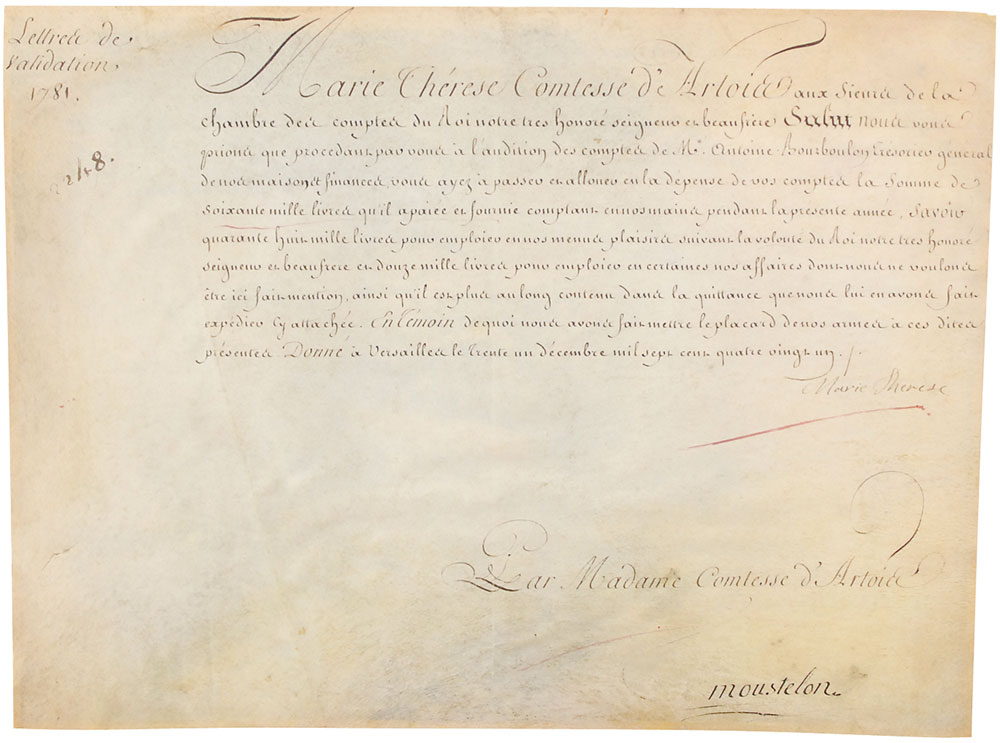 Lettres de
Validation
1781.
248.
Marie Thérese Comtesse d'Artois aux sieurs de la
chambre des comptes du Roi notre tres honoré seigneur et beaufrère Salut nous vous
prions que procedant par vous à l'audition des comptes de Mr. Antoine Bourboulon Tresorier général
de nos maison et finances, vous ayez à passer et allouer en la dépense de vos comptes la Somme de
Soixante mille livres qu'il a paiée et fournie comptant en nos mains pendant la présente année, Savoir
quarante huit mille livres pour emploier en nos menus plaisirs suivant la volonté du Roi notre tres honoré
seigneur et beaufrere et douze mille livres pour emploier en certaines nos affaires dont nous ne voulons
être ici fait mention, ainsi qu'il est plus au long contenu dans la quittance que nous lui en avons fait
expédier cy attachée. En témoin de quoi nous avons fait mettre le placard de nos armes à ces dites
présentes Donné à Versailles le trente un décembre mil sept cent quatre vingt un.
Marie Therese
Par Madame Comtesse d'Artois
moustelon